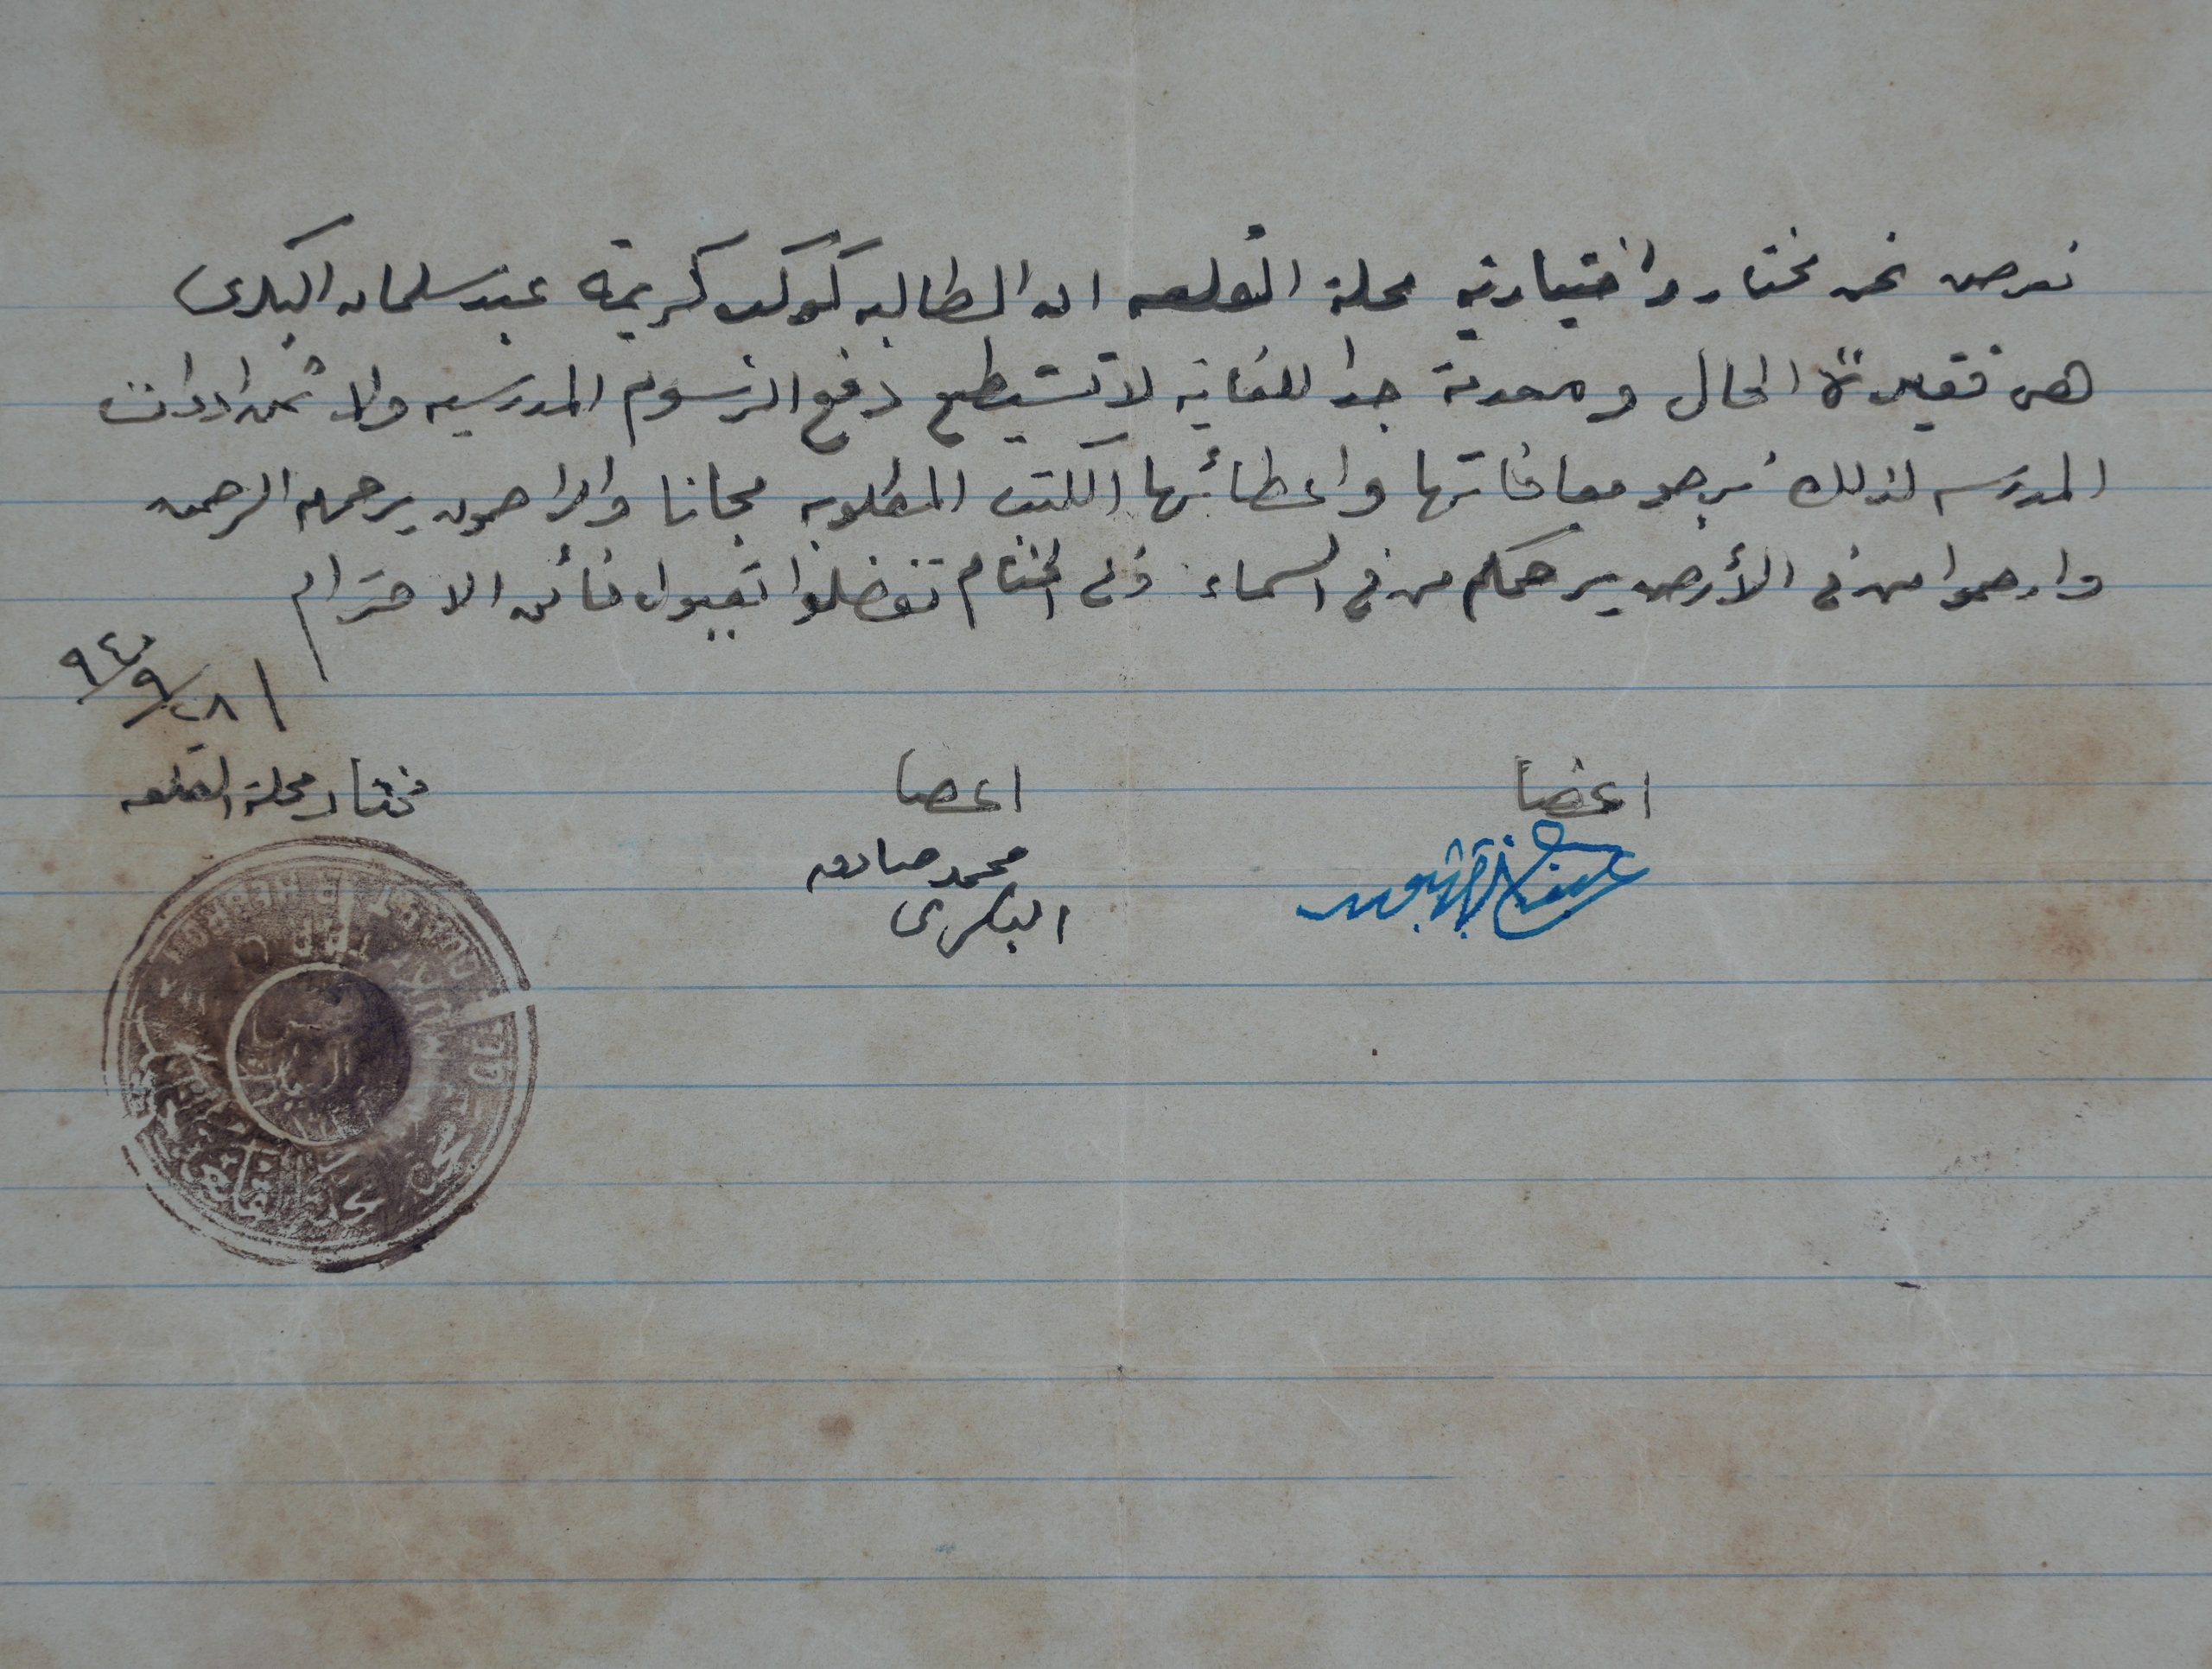 نعرض نحن مختار واختيارية محلة القلعه ان الطالبه كوكب كريمة عبد سلمان البكري
هي فقيرة الحال ومعدمة جدا للغايه لا تستطيع دفع الرسوم المدرسيه ولا ثمن ادوات
المدرسه لذلك نرجو معافاتها واعطائها الكتب المطلوبه مجانا والراحمون يرحمهم الرحمن
وارحموا من في الأرض يرحمكم من في السماء وفي الختام تفضلوا بقبول فائق الاحترام
٢٨/٩/٩٤٠
اعضا
اعضا
مختار محلة القلعه
محمد صادق
البكري